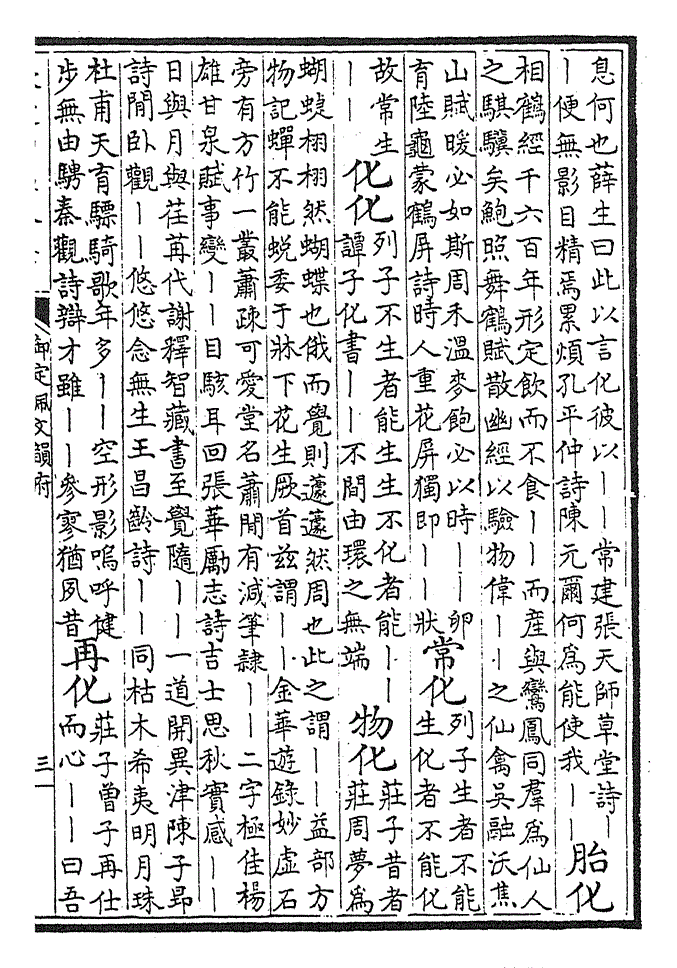 息何也薛生曰此以言化彼以丨丨常建張天師草堂詩丨
丨便無影目精焉累煩孔平仲詩陳元爾何為能使我丨丨
胎化
相鶴經千六百年形定飲而不食丨丨而產與鸞鳳同羣為仙人
之騏驥矣鮑照舞鶴賦散幽經以驗物偉丨丨之仙禽吳融沃焦
山賦暖必如斯周禾溫麥飽必以時丨丨卵
育陸龜蒙鶴屏詩時人重花屏獨即丨丨狀
常化
列子生者不能
生化者不能化
故常生
丨丨
化化
列子不生者能生生不化者能丨丨
譚子化書丨丨不間由環之無端
物化
莊子昔者
莊周夢為
蝴蝶栩栩然蝴蝶也俄而覺則蘧蘧然周也此之謂丨丨益部方
物記蟬不能蛻委于牀下花生厥首兹謂丨丨金華遊錄妙虛石
旁有方竹一叢蕭疎可愛堂名蕭閒有減筆隸丨丨二字極佳楊
雄甘泉賦事變丨丨目駭耳回張華勵志詩吉士思秋實感丨丨
日與月與荏苒代謝釋智藏書至覺隨丨丨一道開異津陳子昂
詩閒卧觀丨丨悠悠念無生王昌齡詩丨丨同枯木希夷明月珠
杜甫天育驃騎歌年多丨丨空形影嗚呼健
步無由騁秦觀詩辯才雖丨丨參寥猶夙昔
再化
莊子曾子再仕
而心丨丨曰吾
御定佩文韻府
三